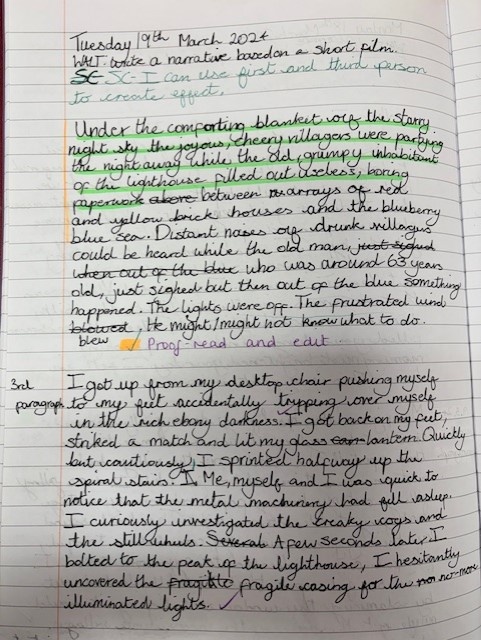 Tuesday 19th March 2024
WALT: write a narrative based on a short film.
SC SC - I can use first and third person
to create effect.
Under the comforting blanket of the starry
night sky the joyous, cheery villagers were partying
the night away while the old, grumpy inhabitant
of the lighthouse filled out useless, boring
paperwork above between arrays of red
and yellow brick houses and the blueberry
blue sea. Distant noses of drunk villagers
could be heard while the old man, just sighed
when out of the blue who was around 63 years
old, just sighed but then out of the blue something
happened. The lights were off. The frustrated wind
blowed, He might/might not know what to do.
blew Proof-read and edit
3rd
paragraph
I got up from my desktop chair pushing myself
to my feet accidentally tripping over myself
in the rich ebony darkness. I got back on my feet,
striked a match and lit my glass lantern. Quickly
but cautiously, I sprinted halfway up the
spiral stairs. I, Me, myself and I was quick to
notice that the metal machinery had fell asleep.
I curiously investigated the creaky cogs and
the still wheels. Several A few seconds later I
bolted to the peak of the lighthouse, I hesitantly
uncovered the fragile casing for the no-more
illuminated lights.